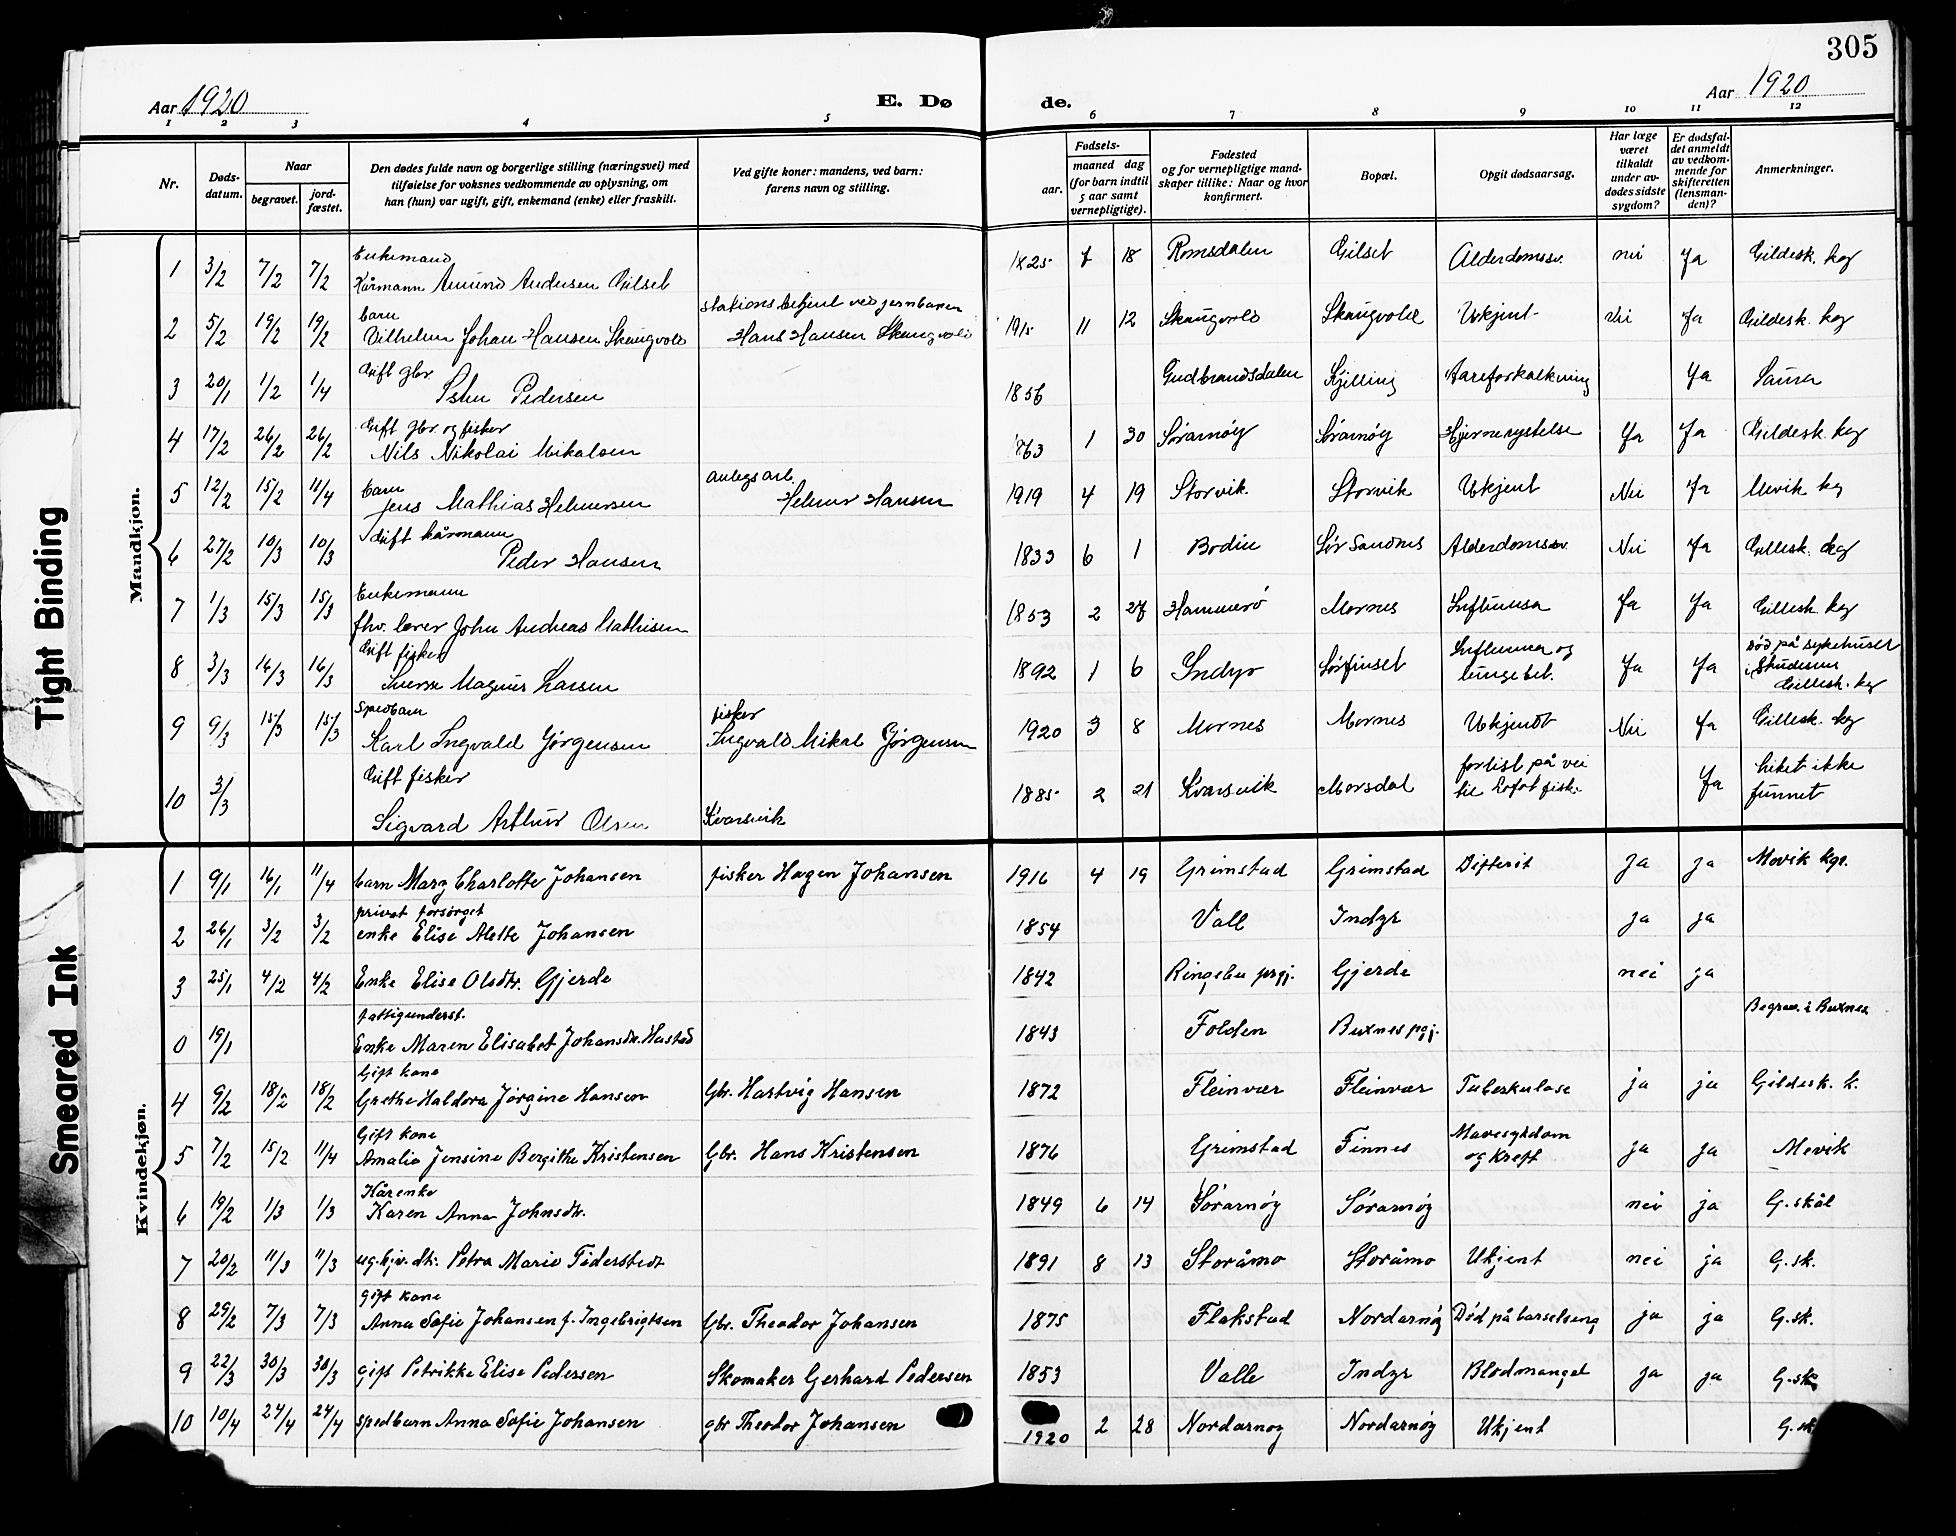 305
Aar 1920
E. Dø de.
Aar 1920
1 2 3 4 5 6 7 8 9 10 11 12
Nr.
Døds-
datum.
Naar
begravet.
jord-
fæstet.
Den dødes fulde navn og borgerlige stilling (næringsvei) med
tilføielse for voksnes vedkommende av oplysning, om
han (hun) var ugift, gift, enkemand (enke) eller fraskilt.
Ved gifte koner: mandens, ved barn:
farens navn og stilling.
Fødsels-
aar.
maaned dag
(for barn indtil
5 aar samt
vernepligtige).
Fødested
og for vernepligtige mand-
skaper tillike: Naar og hvor
konfirmert.
Bopæl.
Opgit dødsaarsag.
Har læge
været
tilkaldt
under av-
dødes sidste
sygdom?
Er dødsfal-
det anmeldt
av vedkom-
mende for
skifteretten
(lensman-
den)?
Anmerkninger.
Mandkjøn.
Enkemand
1 3/2 7/2 7/2 Kårmann Amund Andersen Gilset 1825 7 18 Romsdalen Gilset Alderdomssv. nei Ja Gildesk. kg
barn stationsbetjent ved jernbanen
2 5/2 19/2 19/2 Vilhelm Johan Hansen Skaugvold Hans Hansen Skaugvold 1915 11 12 Skaugvold Skaugvold Ukjent Nei Ja Gildesk. kg
Gift gbr.
3 20/1 1/2 1/4 Pedersen 1856 Gudbrandsdalen Kjelling Aareforkalkning Ja Saura
Gift gbr. og fisker
4 17/2 26/2 26/2 Nils Nikolai Mikalsen 1863 1 30 Sørarnøy Sørarnøy Hjernerystelse Ja Ja Gildesk. kg
barn anlegsarb.
5 12/2 15/2 11/4 Jens Mathias Helmersen Helmer Hansen 1919 4 19 Storvik Storvik Ukjent Nei Ja Mevik kg
Gift kårmann
6 27/2 10/3 10/3 Peder Hansen 1833 6 1 Bodin Sør Sandnes Alderdomssv. Nei Ja Gillesk. kg
Enkemann
7 1/3 15/3 15/3 fhv. lærer John Andreas Mathisen 1853 2 27 Hammerø Mornes Influensa Ja Ja Gillesk. kg
Gift fisker
8 3/3 16/3 16/3 Sverre Magnus Larsen 1892 1 6 Indyr Sørfinset Influensa og lungebet. Ja Ja død på sykehuset i Gillesk. kg
Spedbarn fisker
9 9/3 15/3 15/3 Karl Ingvald Jørgensen Ingvald Mikal Jørgensen 1920 3 8 Mornes Mornes Ukjendt Nei Ja Gillesk. kg
Gift fisker
10 3/3 Sigvard Arthur Olsen Kvarsvik 1885 2 21 Kvarsvik Morsdal forlist på vei til Lofotfiske Ja Liket ikke funnet
Kvindekjøn.
1 9/1 16/1 11/4 barn Mary Charlotte Johansen fisker Hagen Johansen 1916 4 19 Grimstad Grimstad Difterit ja ja Mevik kgr.
privat forsørget
2 26/1 3/2 3/2 enke Elise Alette Johansen 1854 Valle Indyr ja ja
3 25/1 4/2 4/2 Enke Elise Olsdtr. Gjerde 1842 Ringebu prgj. Gjerde nei ja
fattigunderst.
0 19/1 Enke Maren Elisabet Johansdtr. Hustad 1843 Folden Buxnes pgj. Begrav. i Buxnes
Gift kone
4 9/2 18/2 18/2 Grethe Haldora Jørgine Hansen Gbr. Hartvig Hansen 1872 Fleinvær Fleinvær Tuberkulose ja ja Gildesk. k.
Gift kone
5 7/2 15/2 11/4 Amalie Jensine Bergithe Kristensen Gbr. Hans Kristensen 1876 Grimstad Finnes Mavesykdom og kreft ja ja Mevik
Kårenke
6 19/2 1/3 1/3 Karen Anna Johnsdtr. 1849 6 14 Sørarnøy Sørarnøy nei ja G.skål
7 20/2 11/3 11/3 ug. dtr. Petra Marie Tiderstedt 1891 8 13 Storåmo Storåmo Ukjent nei ja G.sk.
gift kone
8 29/2 7/3 7/3 Anna Sofie Johansen f. Ingebrigtsen Gbr. Theodor Johansen 1875 Flakstad Nordarnøy Død på barselseng ja ja G.sk.
9 22/3 30/3 30/3 gift Petrikke Elise Pedersen Skomaker Gerhard Pedersen 1853 Valle Indyr Blodmangel ja ja G.sk
10 10/4 24/4 24/4 spedbarn Anna Sofie Johansen gbr Theodor Johansen 1920 2 28 Nordarnøy Nordarnøy Ukjent G.sk
Tight Binding
Smeared Ink